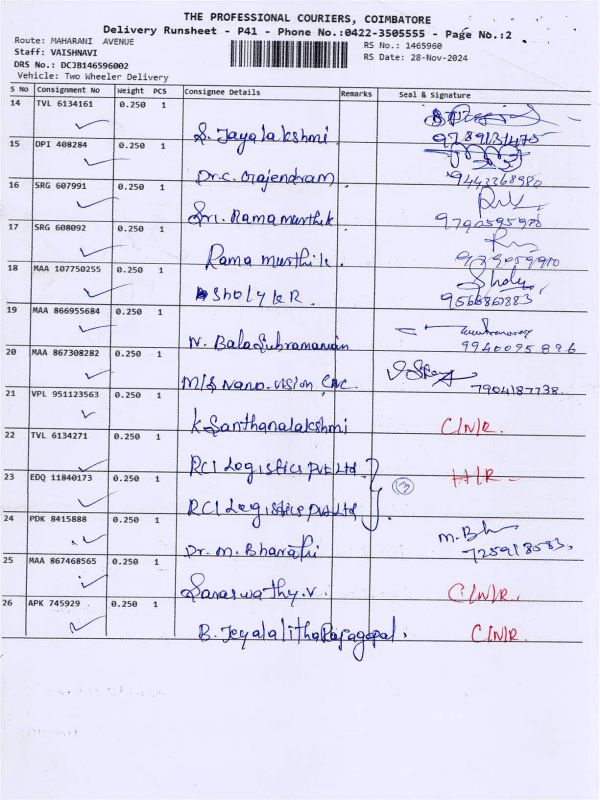 THE PROFESSIONAL COURIERS, COIMBATORE
Delivery Runsheet - P41 - Phone No.:0422-3505555 - Page No.:2
Route: MAHARANI AVENUE
RS No.: 1465960
Staff: VAISHNAVI
RS Date: 28-Nov-2024
DRS No.: DCJB146596002
Vehicle: Two Wheeler Delivery
S No Consignment No Weight PCS Consignee Details Remarks Seal & Signature
14 TVL 6134161 0.250 1
S. Jayalakshmi 9789131475
15 DPI 408284 0.250 1
Dr.C. Orajendram. 9442268980
16 SRG 607991 0.250 1
Sri. Ramamurthik 9790595900
17 SRG 608092 0.250 1
Ramamurthik.
18 MAA 107750255 0.250 1
SHOLY K R. Sholy
9566861883,
19 MAA 866955684 0.250 1
N. BalaSubramanian 9940095896
20 MAA 867308282 0.250 1
M/S Nano-vision, 7904187738.
21 VPL 951123563 0.250 1
K Santhanalakshmi C/N/R.
22 TVL 6134271 0.250 1
RCI Logistics Pvt Ltd
23 EDQ 11840173 0.250 1
RCI Logistics Pvt Ltd
24 PDK 8415888 0.250 1
Dr. M. Bharathi 7259183583,
25 MAA 867468565 0.250 1
Saraswathy.V. C/N/R.
26 APK 745929 0.250 1
B. JeyalalithaRajagopal. C/N/R.